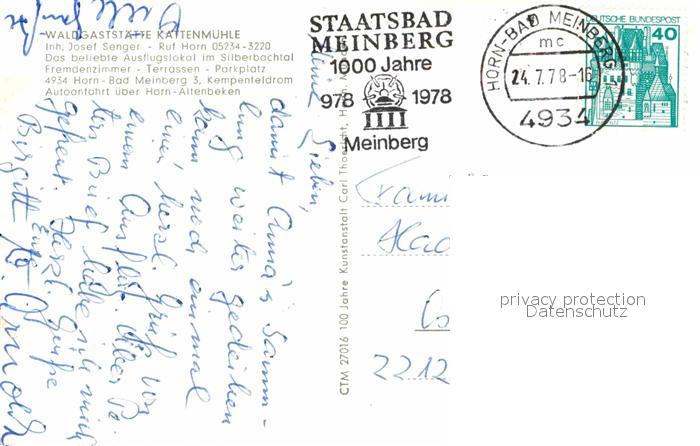 WALDGASTSTÄTTE KATTENMÜHLE
Inh. Josef Senger - Ruf Horn 05234-3220
Das beliebte Ausflugslokal im Silberbachtal
Fremdenzimmer - Terrassen - Parkplatz
4934 Horn-Bad Meinberg 3, Kempenfeldrom
Autoanfahrt über Horn-Altenbeken
STAATSBAD
MEINBERG
1000 Jahre
978 1978
Meinberg
HORN-BAD MEINBERG 1
mc
24.7.78-16
4934
DEUTSCHE BUNDESPOST
40
CTM 27016 100 Jahre Kunstanstalt Carl Thoericht, Hann.
Lieben,
damit Anna's Samm-
lung weiter gedeihen
kann noch einmal
einen herzl. Gruß von
einem Ausflug. Über
Brief habe ich mich
gefreut. Herzl. Grüße
Birgitt
Arnold
Fami
2212
privacy protection
Datenschutz